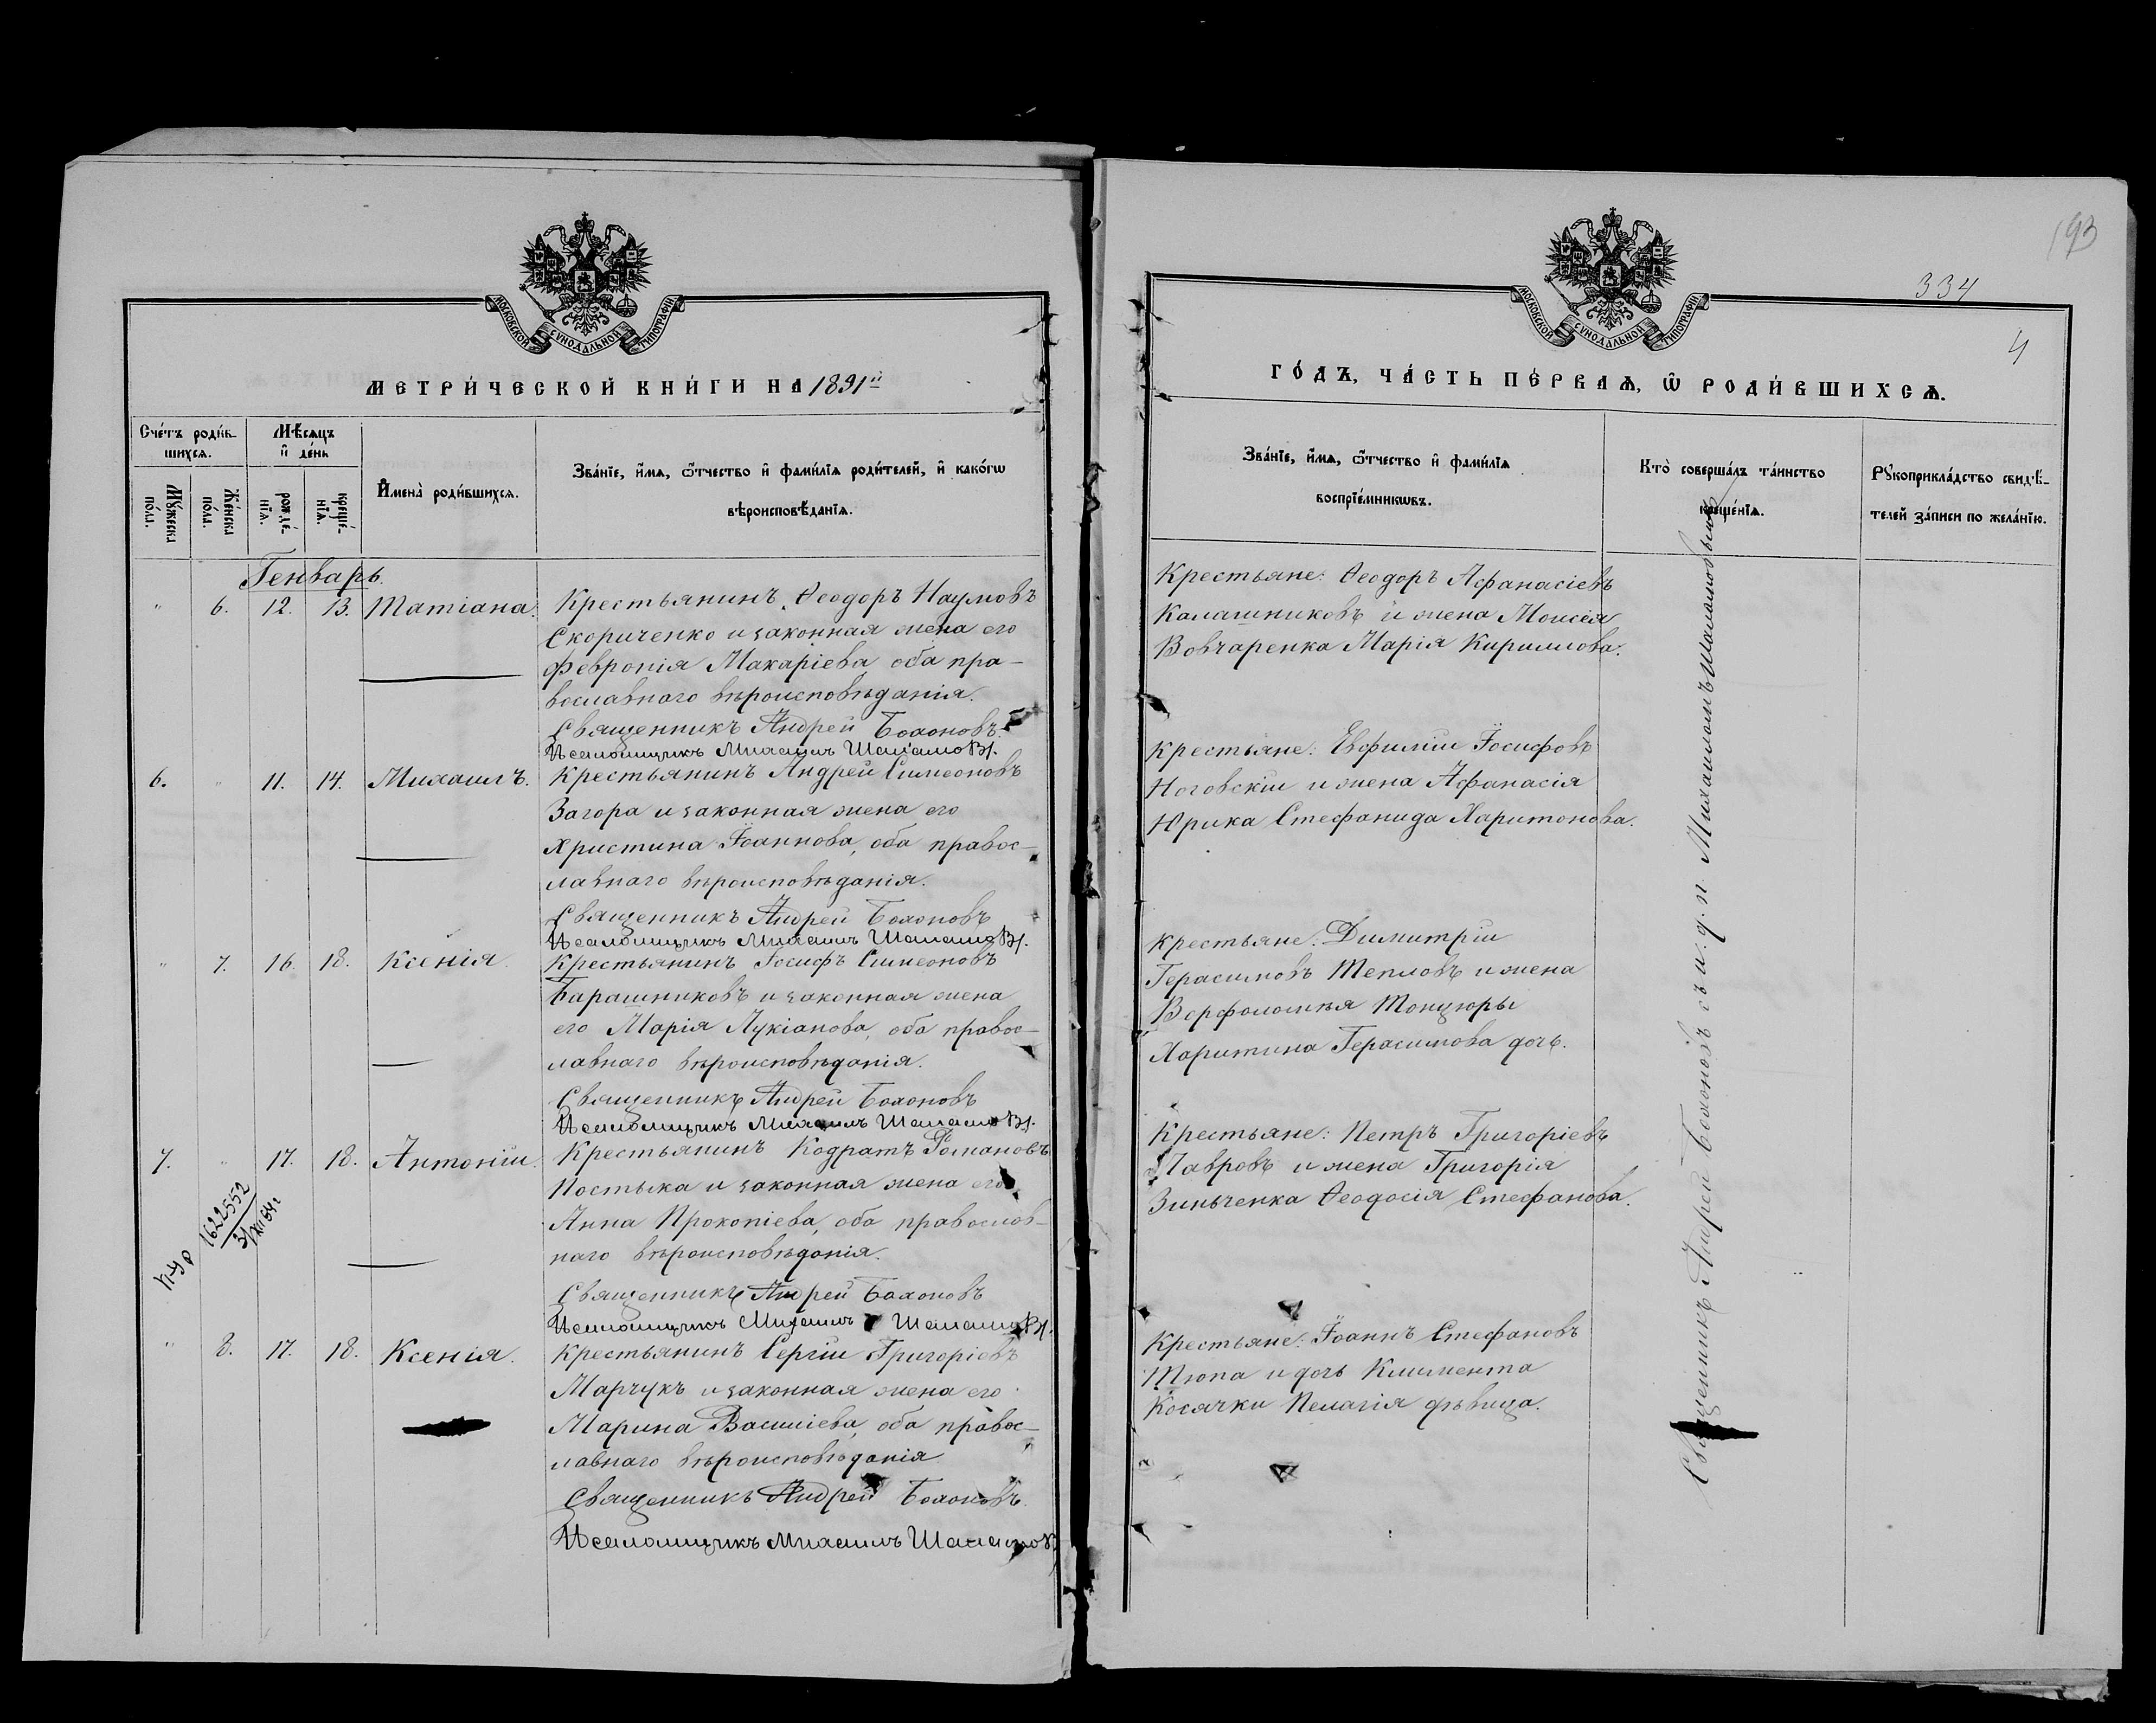 193
334
4
МОСКОВСКОЙ СѴНОДАЛЬНОЙ ТИПОГРАФІИ
МОСКОВСКОЙ СѴНОДАЛЬНОЙ ТИПОГРАФІИ
МЕТРИ́ЧЕСКОЙ КНИ́ГИ НА 1891й
ГО́ДЪ, ЧА́СТЬ ПЕ́РВАѦ, Ѡ҆ РОДИ́ВШИХСѦ.
Сче́тъ роди́в-
шихся.
Мꙋ́жеска по́ла.
Же́нска по́ла.
Мѣ́сяцъ
и҆ де́нь
рожде́-
нїя.
креще́-
нїя.
И҆мена̀ роди́вшихся.
Зва́нїе, и҆́мя, ѻ҆́тчество и҆ фами́лїя роди́телей, и҆ како́гѡ
вѣроисповѣ́данїя.
Зва́нїе, и҆́мя, ѻ҆́тчество и҆ фами́лїя
воспрїе́мникѡвъ.
Кто̀ соверша́лъ та́инство
креще́нїя.
Рꙋкоприкла́дство свидѣ́-
телей за́писи по жела́нїю.
Генварь.
" 6. 12. 13. Татіана.
Крестьянинъ Ѳеодоръ Наумовъ
Скориченко и законная жена его
Февропія Макаріева оба пра-
вославнаго вѣроисповѣданія.
Священникъ Андрей Бохоновъ.
Псаломщикъ Михаилъ Шаламовъ.
Крестьяне: Ѳеодоръ Афанасіевъ
Калашниковъ и жена Моисея
Вовчаренка Марія Кириллова.
6. " 11. 14. Михаилъ.
Крестьянинъ Андрей Симеоновъ
Загора и законная жена его
Христина Іоаннова, оба правос-
лавнаго вѣроисповѣданія.
Священникъ Андрей Бохоновъ
Псаломщикъ Михаилъ Шаламовъ.
Крестьяне: Евфимій Іосифовъ
Ноговскій и жена Афанасія
Юрика Стефанида Харитонова.
" 7. 16. 18. Ксенія.
Крестьянинъ Іосифъ Симеоновъ
Барашниковъ и законная жена
его Марія Лукіанова, оба правос-
лавнаго вѣроисповѣданія.
Священникъ Андрей Бохоновъ
Псаломщикъ Михаилъ Шаламовъ.
Крестьяне: Димитрій
Герасимовъ Тепловъ и жена
Варфоломѣя Тонцюры
Харитина Герасимова дочь.
7. " 17. 18. Антоній.
Крестьянинъ Кодратъ Романовъ
Постыка и законная жена его
Анна Прокопіева, оба православ-
наго вѣроисповѣданія.
Священникъ Андрей Бохоновъ
Псаломщикъ Михаилъ Шаламовъ.
Крестьяне: Петръ Григоріевъ
Лавровъ и жена Григорія
Зинченка Ѳеодосія Стефанова.
1622552
" 8. 17. 18. Ксенія.
Крестьянинъ Сергій Григоріевъ
Марчукъ и законная жена его
Марина Василіева, оба правос-
лавнаго вѣроисповѣданія
Священникъ Андрей Бохоновъ.
Псаломщикъ Михаилъ Шаламовъ
Крестьяне: Іоаннъ Стефановъ
Тюпа и дочь Климента
Косячки Пелагія дѣвица.
Священникъ Андрей Бохоновъ съ и. д. п. Михаиломъ Шаламовымъ